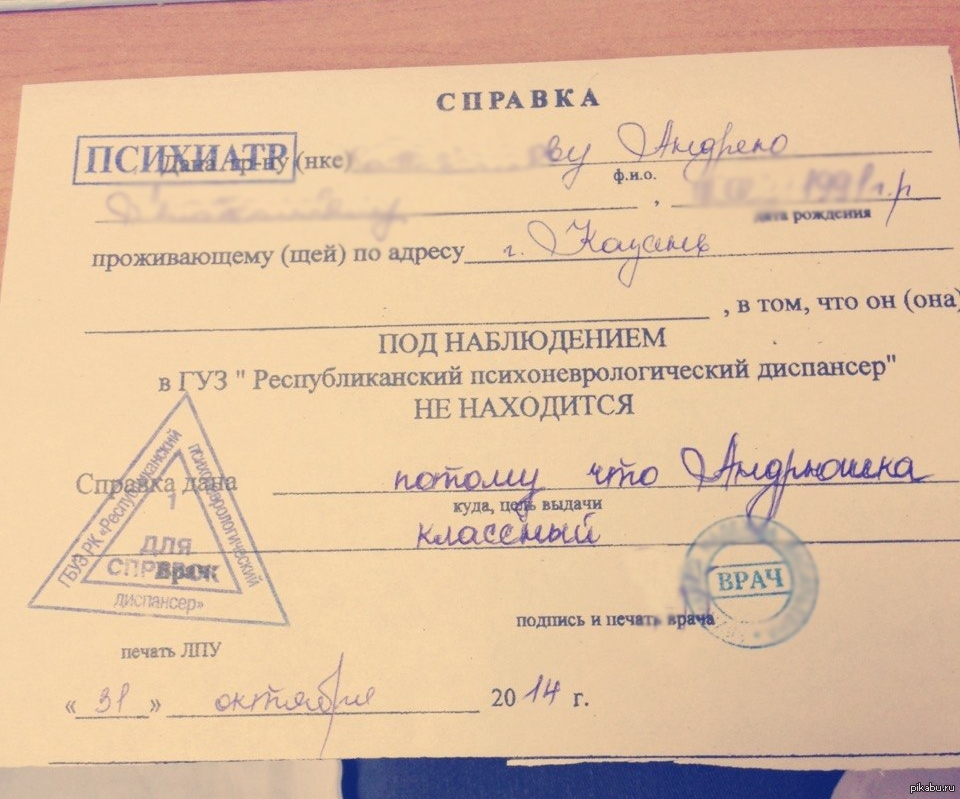 СПРАВКА
ПСИХИАТР
Дана гр-ну (нке) ву Андрею
ф.и.о.
, 1991 г.р
дата рождения
проживающему (щей) по адресу г.
, в том, что он (она)
ПОД НАБЛЮДЕНИЕМ
в ГУЗ " Республиканский психоневрологический диспансер"
НЕ НАХОДИТСЯ
Справка дана потому что Андрюшка
куда, цель выдачи
классный
ГБУЗ РК «Республиканский психоневрологический диспансер»
1
ДЛЯ
СПРАВОК
Врач
ВРАЧ
подпись и печать врача
печать ЛПУ
« 31 » октября 2014 г.
pikabu.ru